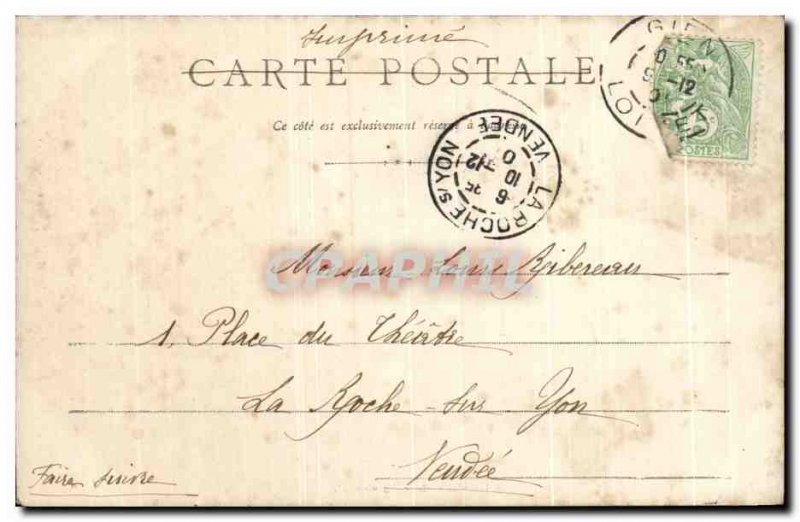 Imprimé
CARTE POSTALE
Ce côté est exclusivement réservé à
GIEN
LOI
POSTES
LA ROCHE S/ YON
VENDÉE
CPAPHIL
Monsieur Louis Ribereau
1, Place du Théâtre
La Roche-sur Yon
Vendée
Faire suivre